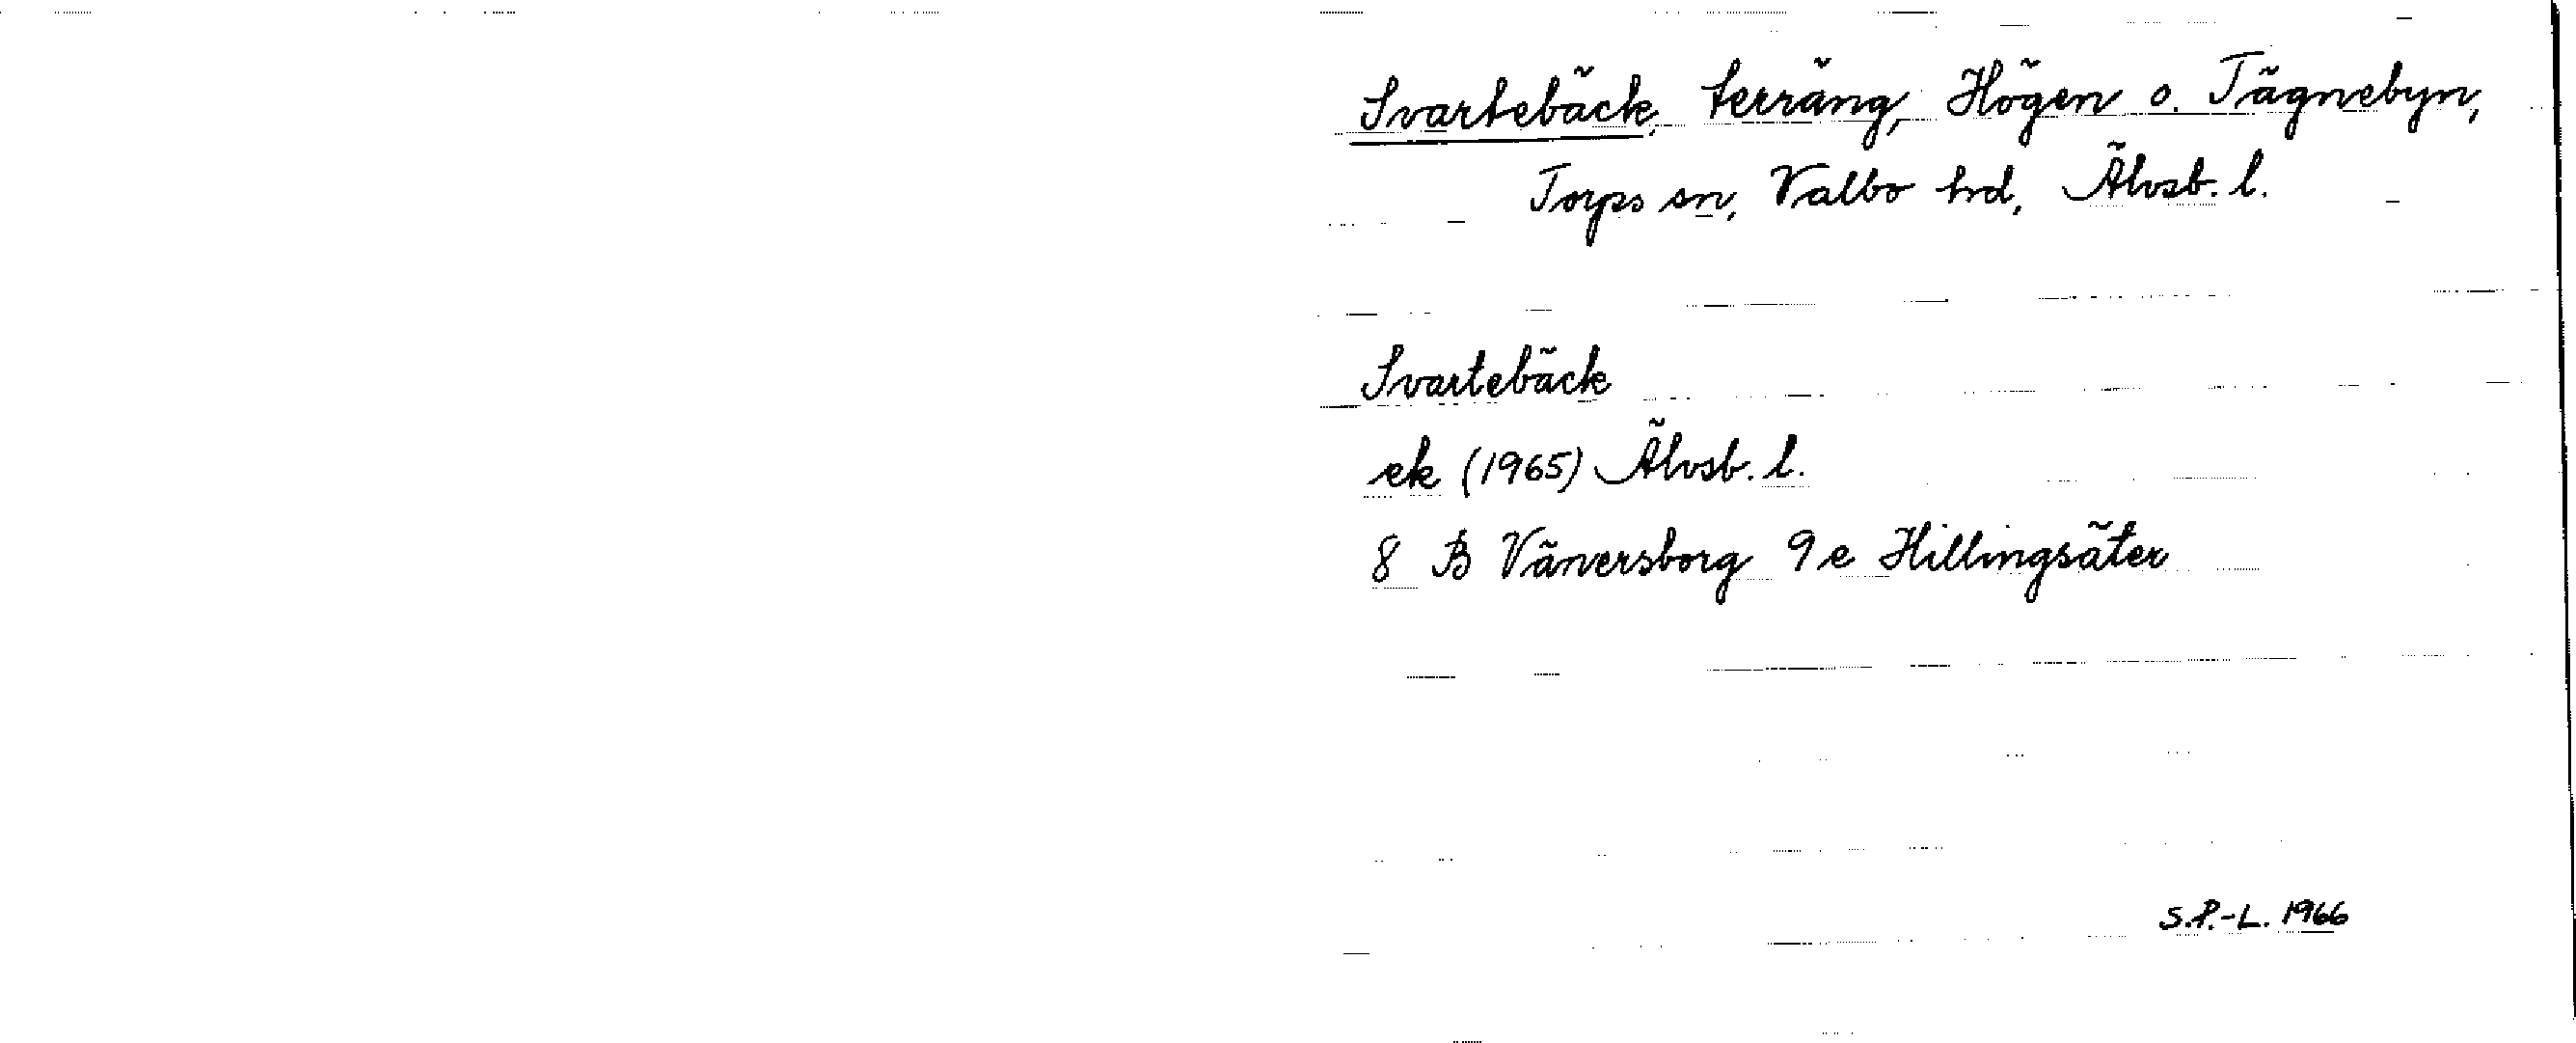 Svartebäck, terräng, Högen o. Tägnebyn,
Torps sn, Valbo hd, Älvsb. l.
Svartebäck
ek (1965) Älvsb. l.
8 B Vänersborg 9 e Hillingsäter
S.P.-L. 1966